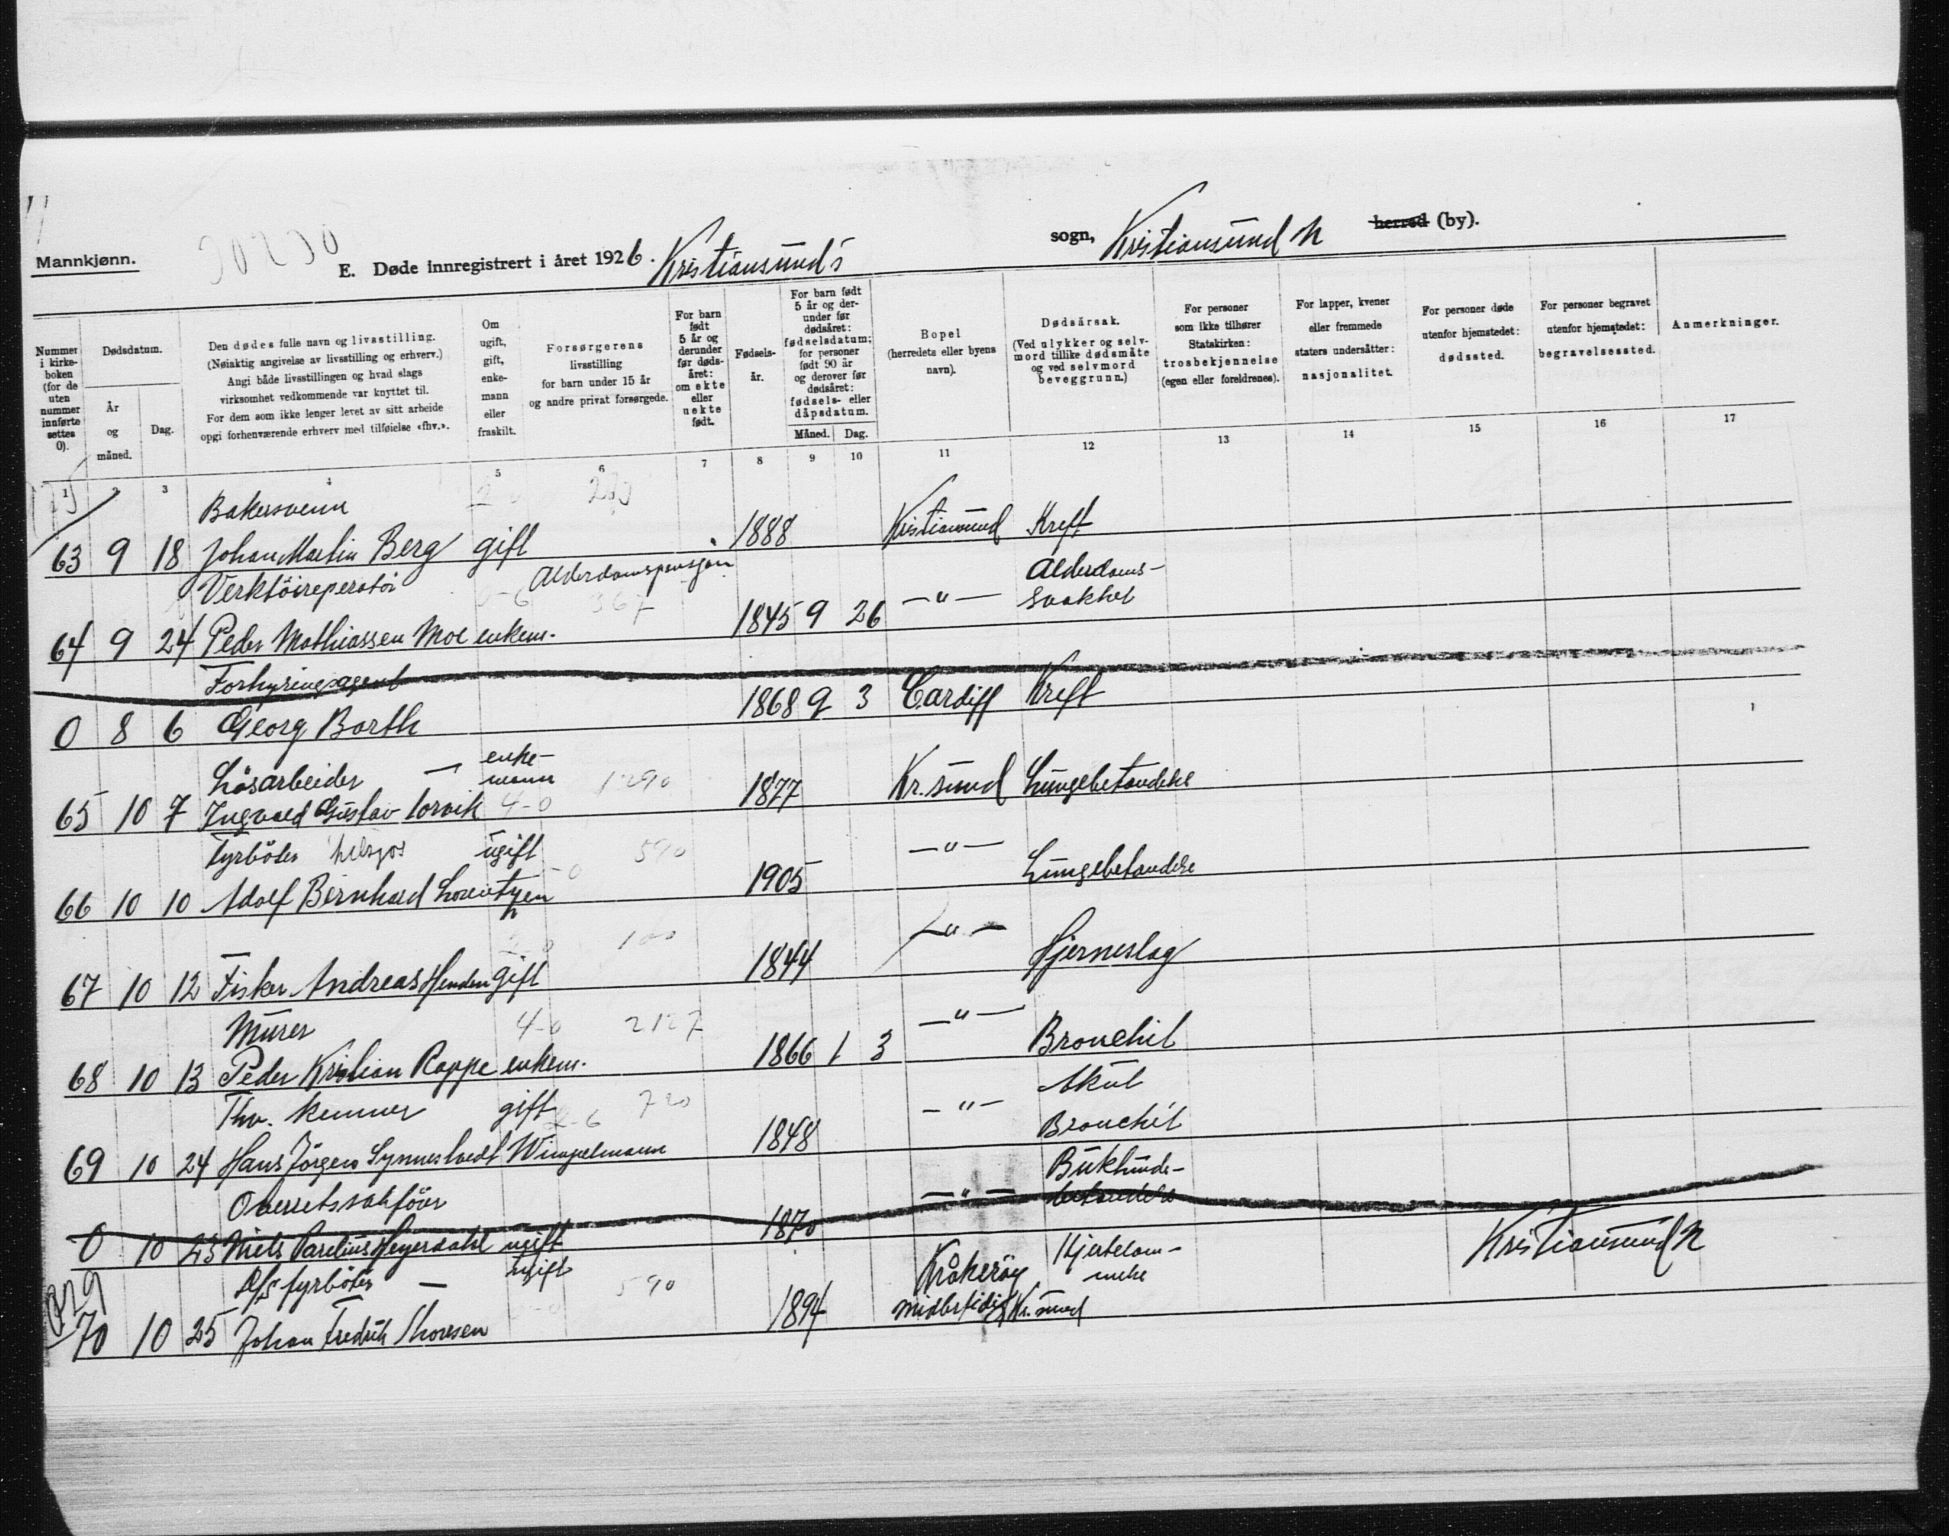 Mannkjønn.
E. Døde innregistrert i året 1926. Kristiansund's sogn, Kristiansund N herred (by).
Nummer i kirkeboken (for de uten nummer innførte settes 0).
Dødsdatum.
År og måned.
Dag.
Den dødes fulle navn og livsstilling.
(Nøiaktig angivelse av livsstilling og erhverv.)
Angi både livsstillingen og hvad slags
virksomhet vedkommende var knyttet til.
For dem som ikke lenger levet av sitt arbeide
opgi forhenværende erhverv med tilføielse «fhv.».
Om ugift, gift, enkemann eller fraskilt.
Forsørgerens
livsstilling
for barn under 15 år
og andre privat forsørgede.
For barn født 5 år og derunder før dødsåret: om ekte eller uekte født.
Fødselsår.
For barn født 5 år og derunder før dødsåret: fødselsdatum; for personer født 90 år og derover før dødsåret: fødsels- eller dåpsdatum.
Måned. Dag.
Bopel
(herredets eller byens navn).
Dødsårsak.
(Ved ulykker og selvmord tillike dødsmåte og ved selvmord beveggrunn.)
For personer
som ikke tilhører
Statskirken:
trosbekjennelse
(egen eller foreldrenes).
For lapper, kvener
eller fremmede
staters undersåtter:
nasjonalitet.
For personer døde
utenfor hjemstedet:
dødssted.
For personer begravet
utenfor hjemstedet:
begravelsessted.
Anmerkninger.
1 2 3 4 5 6 7 8 9 10 11 12 13 14 15 16 17
Bakersvenn
63 9 18 Johan Martin Berg gift 1888 Kristiansund Kreft
Verktöireperatör Alderdomspensjon Alderdoms-
64 9 24 Peder Mathiassen Moe enkem. 1845 9 26 —"— svakhet
Forhyringsagent
0 8 6 Georg Barth 1868 9 3 Cardiff Kreft
Løsarbeider — enke-
mann
65 10 7 Ingvald Gustav Lorvik 4-0 1290 1877 Kr.sund Lungebetendelse
Fyrböter ugift 590
66 10 10 Adolf Bernhard Lorentzen 1905 —"— Lungebetendelse
100
67 10 12 Fisker Andreas Henden gift 1844 —"— Hjerneslag
Murer 4-0 2127
68 10 13 Peder Kristian Rappe enkem. 1866 1 3 —"— Bronchit
Fhv. kemner gift 720 Akut
69 10 24 Hans Jörgen Synnestvedt Wingelmann 1848 —"— Bronchit
Overretssakförer Bukhinde-
betendelse
0 10 23 Niels Parelius Heyerdahl ugift 1870 —"—
D/s fyrböter — ugift 590 Kråkeröy Hjertelam- Kristiansund N
melse
70 10 25 Johan Fredrik Thoresen 1894 midlertidig Kr.sund